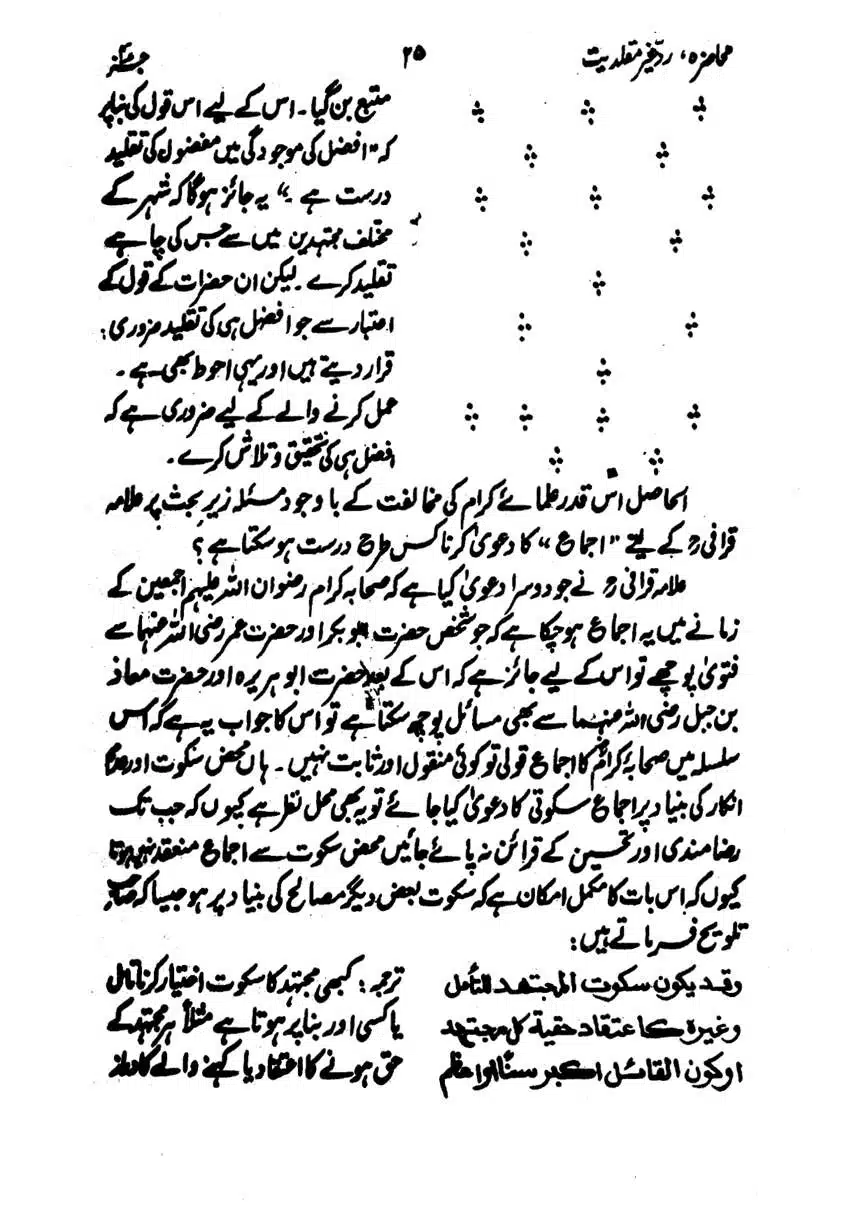 محاضرہ، ردّ غیر مقلدیت
۲۵
متبع بن گیا۔ اس کے لیے اس قول کی بنا پر
کہ "افضل کی موجودگی میں مفضول کی تقلید
درست ہے۔" یہ جائز ہوگا کہ شہر کے
مختلف مجتہدین میں سے جس کی چاہے
تقلید کرے۔ لیکن ان حضرات کے قول کے
اعتبار سے جو افضل ہی کی تقلید ضروری:
قرار دیتے ہیں اور یہی احوط بھی ہے۔
عمل کرنے والے کے لیے ضروری ہے کہ
افضل ہی کی تحقیق و تلاش کرے۔
الحاصل اس قدر علمائے کرام کی مخالفت کے باوجود مسئلہ زیر بحث پر علامہ
قرافیؒ کے لیے "اجماع" کا دعویٰ کرنا کس طرح درست ہو سکتا ہے؟
علامہ قرافیؒ نے جو دوسرا دعویٰ کیا ہے کہ صحابہ کرام رضوان اللہ علیہم اجمعین کے
زمانے میں یہ اجماع ہو چکا ہے کہ جو شخص حضرت ابو بکر اور حضرت عمر رضی اللہ عنہما سے
فتویٰ پوچھے تو اس کے لیے جائز ہے کہ اس کے بعد حضرت ابو ہریرہ اور حضرت معاذ
بن جبل رضی اللہ عنہما سے بھی مسائل پوچھ سکتا ہے تو اس کا جواب یہ ہے کہ اس
سلسلہ میں صحابہ کرامؓ کا اجماع قولی تو کوئی منقول اور ثابت نہیں۔ ہاں محض سکوت اور عدم
انکار کی بنیاد پر اجماع سکوتی کا دعویٰ کیا جائے تو یہ بھی محل نظر ہے کیوں کہ جب تک
رضامندی اور تحسین کے قرائن نہ پائے جائیں محض سکوت سے اجماع منعقد نہیں ہوتا
کیوں کہ اس بات کا مکمل امکان ہے کہ سکوت بعض دیگر مصالح کی بنیاد پر ہو جیسا کہ صاحب
تلویح فرماتے ہیں:
وقد یکون سکوت المجتھد للتأمل
وغیرہ کاعتقاد حقیۃ کل مجتھد
او کون القائل اکبر سنّا او اعظم
ترجمہ: کبھی مجتہد کا سکوت اختیار کرنا تامل
یا کسی اور بنا پر ہوتا ہے مثلاً ہر مجتہد کے
حق ہونے کا اعتقاد یا کہنے والے کا